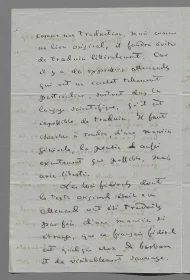 comme une traduction, mais comme
un livre original, il faudra éviter
de traduire littéralement. Car
il y a des expressions allemandes
qui ont un cachet tellement
particulier, surtout dans le
langage scientifique, qu'il est
impossible de traduire. Il faut
chercher à rendre d'une manière
générale, la pensée aussi
exactement que possible, mais
avec liberté.
Les lois fédérales dont
le texte original était en
allemand ont été traduites
parfois d'une manière si
étrange, que le français fédéral
est quelque chose de barbare
et de véritablement sauvage.